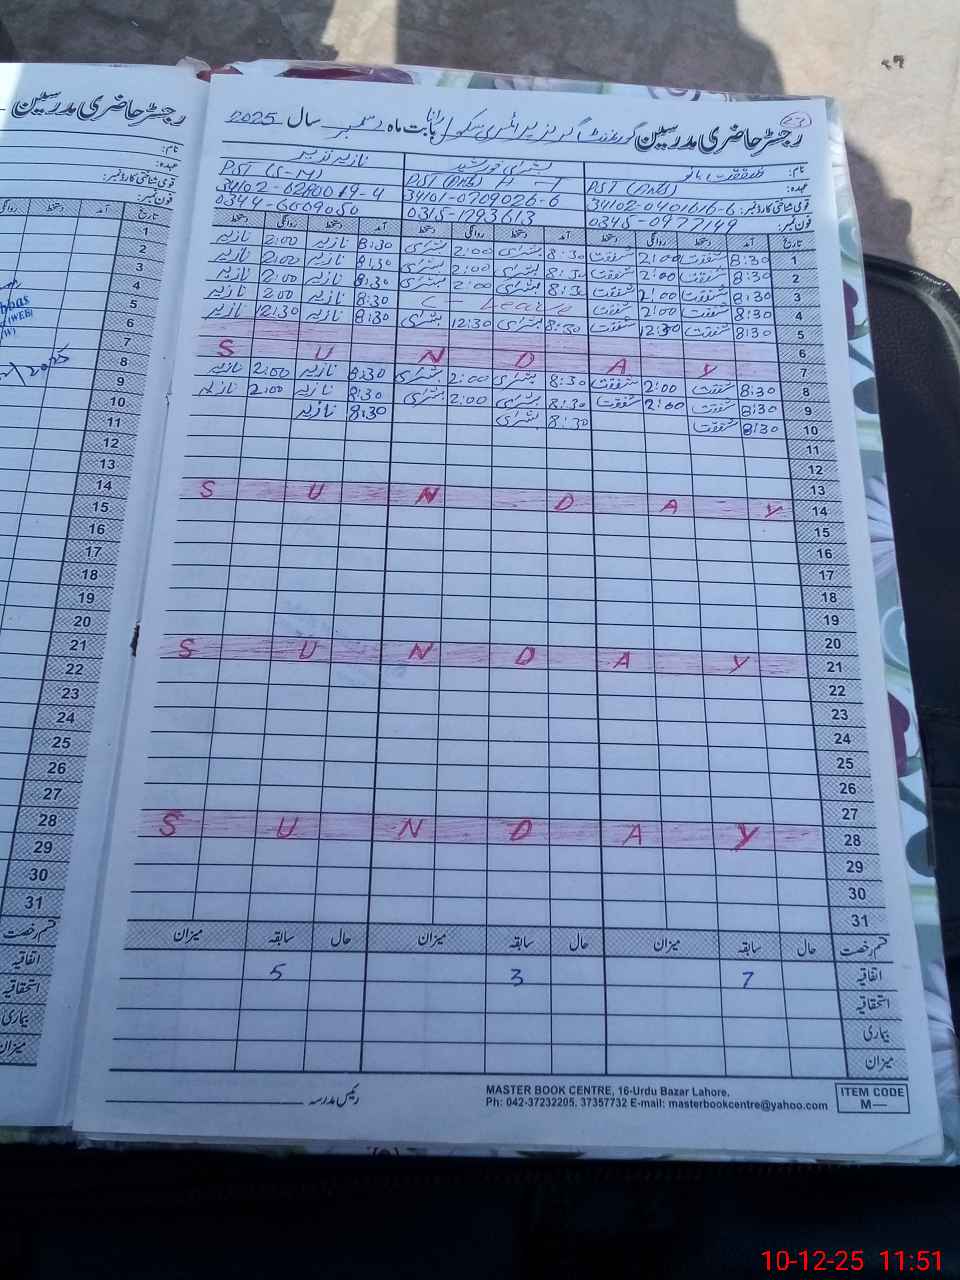 رجسٹر حاضری مدرسین
نام:
عہدہ:
قومی شناختی کارڈ نمبر:
فون نمبر:
تاریخ آمد دستخط روانگی
1
2
3
4
5
6
7
8
9
10
11
12
13
14
15
16
17
18
19
20
21
22
23
24
25
26
27
28
29
30
31
قسم رخصت
اتفاقیہ
استحقاقیہ
بیماری
میزان
23
رجسٹر حاضری مدرسین گورنمنٹ گرلز پرائمری سکول بابت ماہ دسمبر سال 2025
نام: شفقت بانو بشرای خورشید نازیہ نذیر
عہدہ: PST PST PST
قومی شناختی کارڈ نمبر: 34102-0401616-6 34101-0709026-6 34102-0280019-4
فون نمبر: 0345-0977149 0315-1793613 0344-6609050
تاریخ آمد دستخط روانگی دستخط آمد دستخط روانگی دستخط آمد دستخط روانگی دستخط
1 8:30 شفقت 2:00 شفقت 8:30 بشرای 2:00 بشرای 8:30 نازیہ 2:00 نازیہ
2 8:30 شفقت 2:00 شفقت 8:30 بشرای 2:00 بشرای 8:30 نازیہ 2:00 نازیہ
3 8:30 شفقت 2:00 شفقت 8:30 بشرای 2:00 بشرای 8:30 نازیہ 2:00 نازیہ
4 8:30 شفقت 2:00 شفقت C Leave 8:30 نازیہ 2:00 نازیہ
5 8:30 شفقت 12:30 شفقت 8:30 بشرای 12:30 بشرای 8:30 نازیہ 12:30 نازیہ
6
7 S U N D A Y
8 8:30 شفقت 2:00 شفقت 8:30 بشرای 2:00 بشرای 8:30 نازیہ 2:00 نازیہ
9 8:30 شفقت 2:00 شفقت 8:30 بشرای 2:00 بشرای 8:30 نازیہ 2:00 نازیہ
10 8:30 شفقت 8:30 بشرای 8:30 نازیہ
11
12
13
14 S U N D A Y
15
16
17
18
19
20
21 S U N D A Y
22
23
24
25
26
27
28 S U N D A Y
29
30
31
قسم رخصت حال سابقہ میزان حال سابقہ میزان حال سابقہ میزان
اتفاقیہ 7 3 5
استحقاقیہ
بیماری
میزان
رئیس مدرسہ
MASTER BOOK CENTRE, 16-Urdu Bazar Lahore.
Ph: 042-37232205, 37357732 E-mail: masterbookcentre@yahoo.com
ITEM CODE
M—
10-12-25 11:51